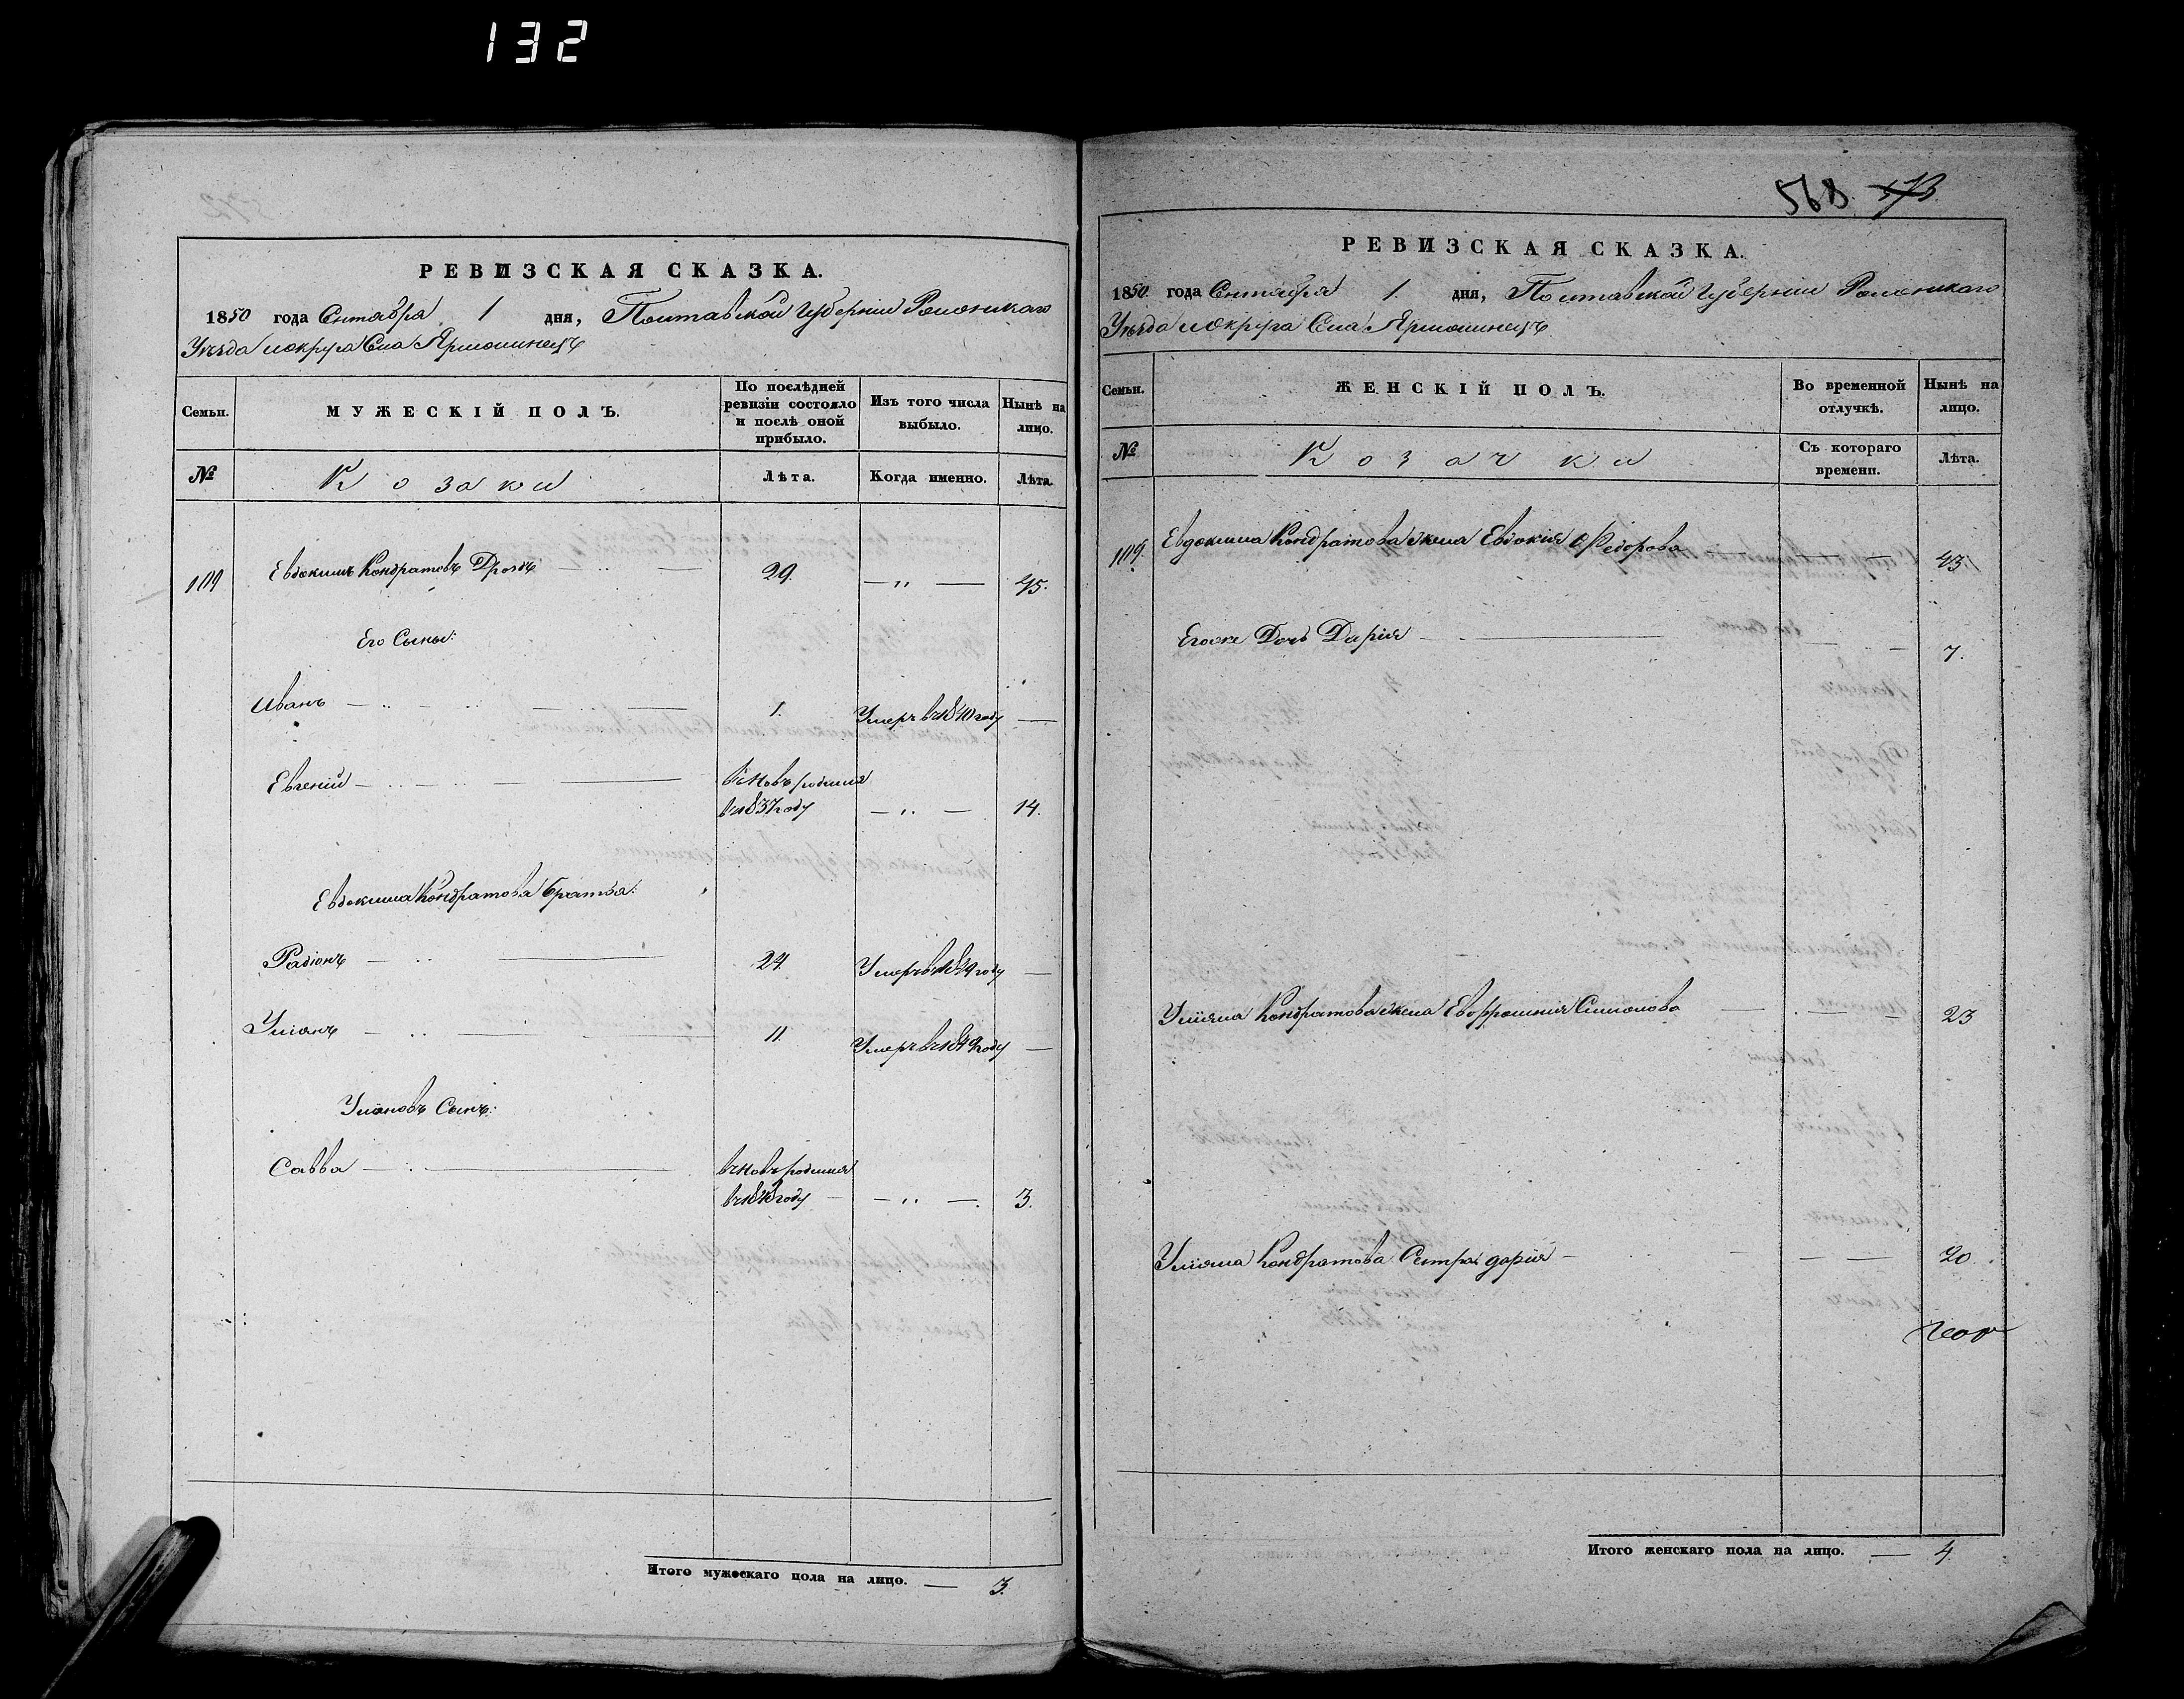 132
РЕВИЗСКАЯ СКАЗКА.
1850 года Сентября 1 дня, Полтавской Губерніи Роменскаго
Уѣзда и округа Села Ярмолинецъ
Семьи.
МУЖЕСКІЙ ПОЛЪ.
По послѣдней ревизіи состояло и послѣ оной прибыло.
Изъ того числа выбыло.
Нынѣ на лицо.
№
Козаки
Лѣта.
Когда именно.
Лѣта.
109 Евдокимъ Кондратовъ Дроздъ — 29. — „ — 45.
Его Сыны:
Иванъ — 1. Умеръ въ 1840 году —
Евгений — Вновь родился
въ 1837 году — „ — 14.
Евдокима Кондратова братья:
Радіонъ — 24. Умеръ въ 1849 году —
Уліянъ — 11. Умеръ въ 1849 году —
Уліановъ Сынъ:
Савва — вновь родился
въ 1848 году — „ — 3.
Итого мужескаго пола на лицо. — 3.
568. 573.
РЕВИЗСКАЯ СКАЗКА.
1850 года Сентября 1. дня, Полтавской Губерніи Роменскаго
Уѣзда и округа Села Ярмолинецъ
Семьи.
ЖЕНСКІЙ ПОЛЪ.
Во временной отлучкѣ.
Нынѣ на лицо.
№
Козачки
Съ котораго времени.
Лѣта.
109. Евдокима Кондратова жена Евдокия Федорова — 43.
Егоже Дочь Дарія — 7.
Уліяна Кондратова жена Евфросинія Симонова — 23
Уліяна Кондратова Сестра дарія — 20.
Итого женскаго пола на лицо. — 4.